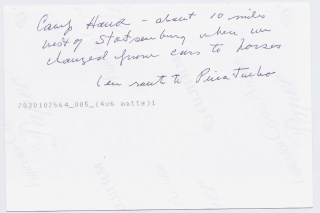 Camp Hawk - about 10 miles
west of Stotsenburg where we
changed from cars to horses
en route to Pinatubo
2030102564_005_(4x6 matte)1